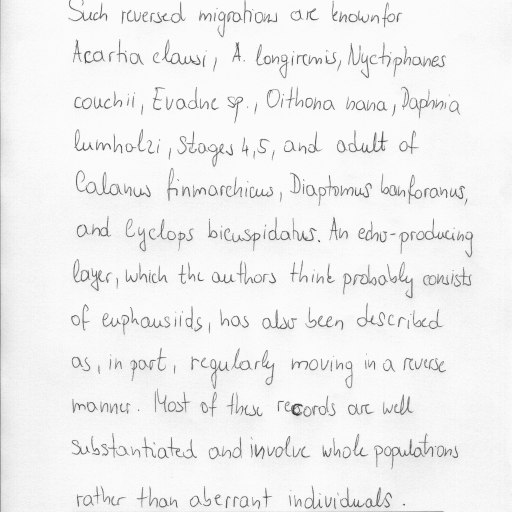 Such reversed migrations are known for
Acartia clausi, A. longiremis, Nyctiphanes
couchii, Evadne sp., Oithona nana, Daphnia
lumholzi, Stages 4,5, and adult of
Calanus finmarchicus, Diaptomus banforanus,
and Cyclops bicuspidatus. An echo-producing
layer, which the authors think probably consists
of euphausiids, has also been described
as, in part, regularly moving in a reverse
manner. Most of these records are well
substantiated and involve whole populations
rather than aberrant individuals.